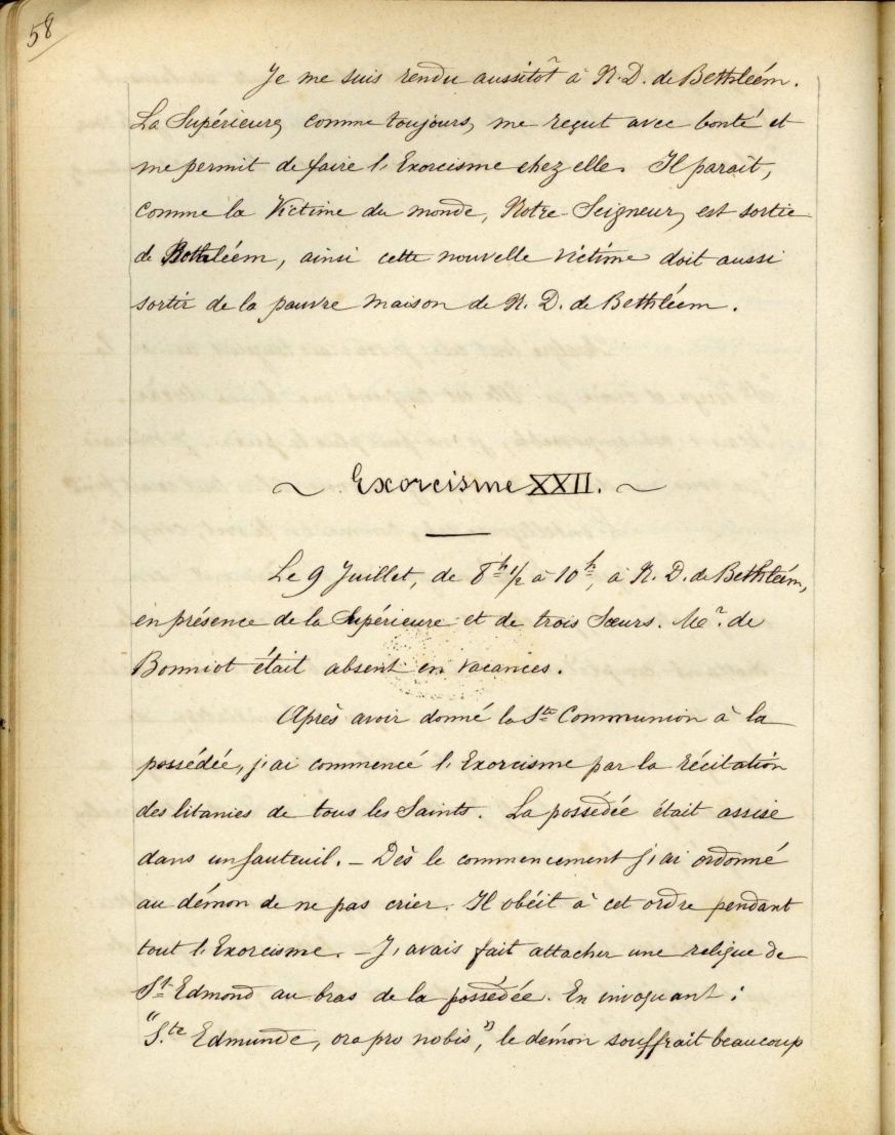 58
Je me suis rendu aussitôt à N. D. de Bethléem.
La Supérieure, comme toujours, me reçut avec bonté et
me permit de faire l'Exorcisme chez elle. Il parait,
comme la Victime du monde, Notre-Seigneur, est sortie
de Bethléem, ainsi cette nouvelle victime doit aussi
sortir de la pauvre maison de N. D. de Bethléem.
~ Exorcisme XXII. ~
Le 9 Juillet, de 8h 1/2 à 10h, à N. D. de Bethléem,
en présence de la Supérieure et de trois Sœurs. Mr. de
Bonniot était absent en vacances.
Après avoir donné la Ste Communion à la
possédée, j'ai commencé l'Exorcisme par la récitation
des litanies de tous les Saints. La possédée était assise
dans un fauteuil. – Dès le commencement j'ai ordonné
au démon de ne pas crier. Il obéit à cet ordre pendant
tout l'Exorcisme. – J'avais fait attacher une relique de
St Edmond au bras de la possédée. En invoquant :
"S.te Edmunde, ora pro nobis", le démon souffrait beaucoup